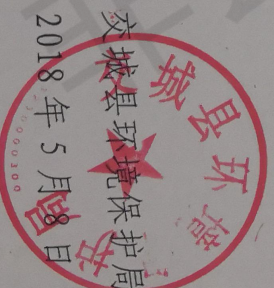 交城县环境保护局
2018年5月8日
城县环境护局